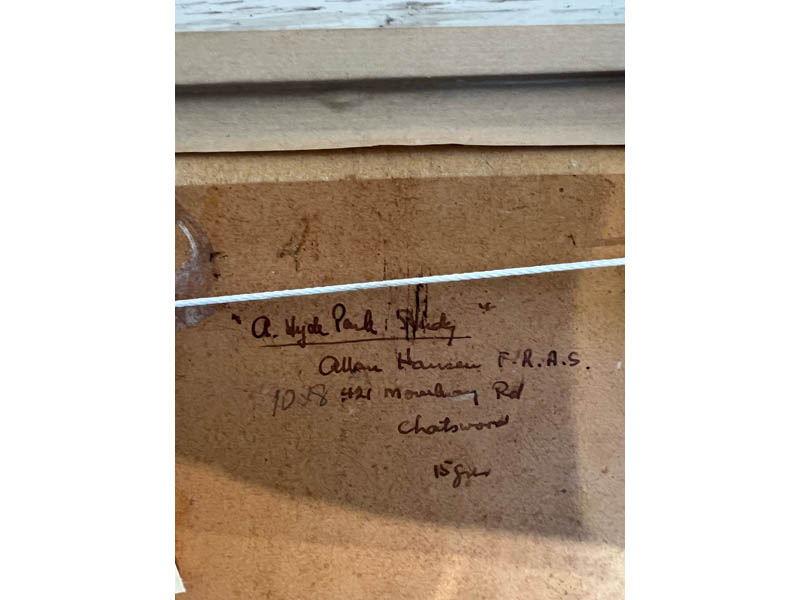 "A. Hyde Park Study"
Allan Hansen F.R.A.S.
10x8 421 Mowbray Rd
Chatswood
15 gns